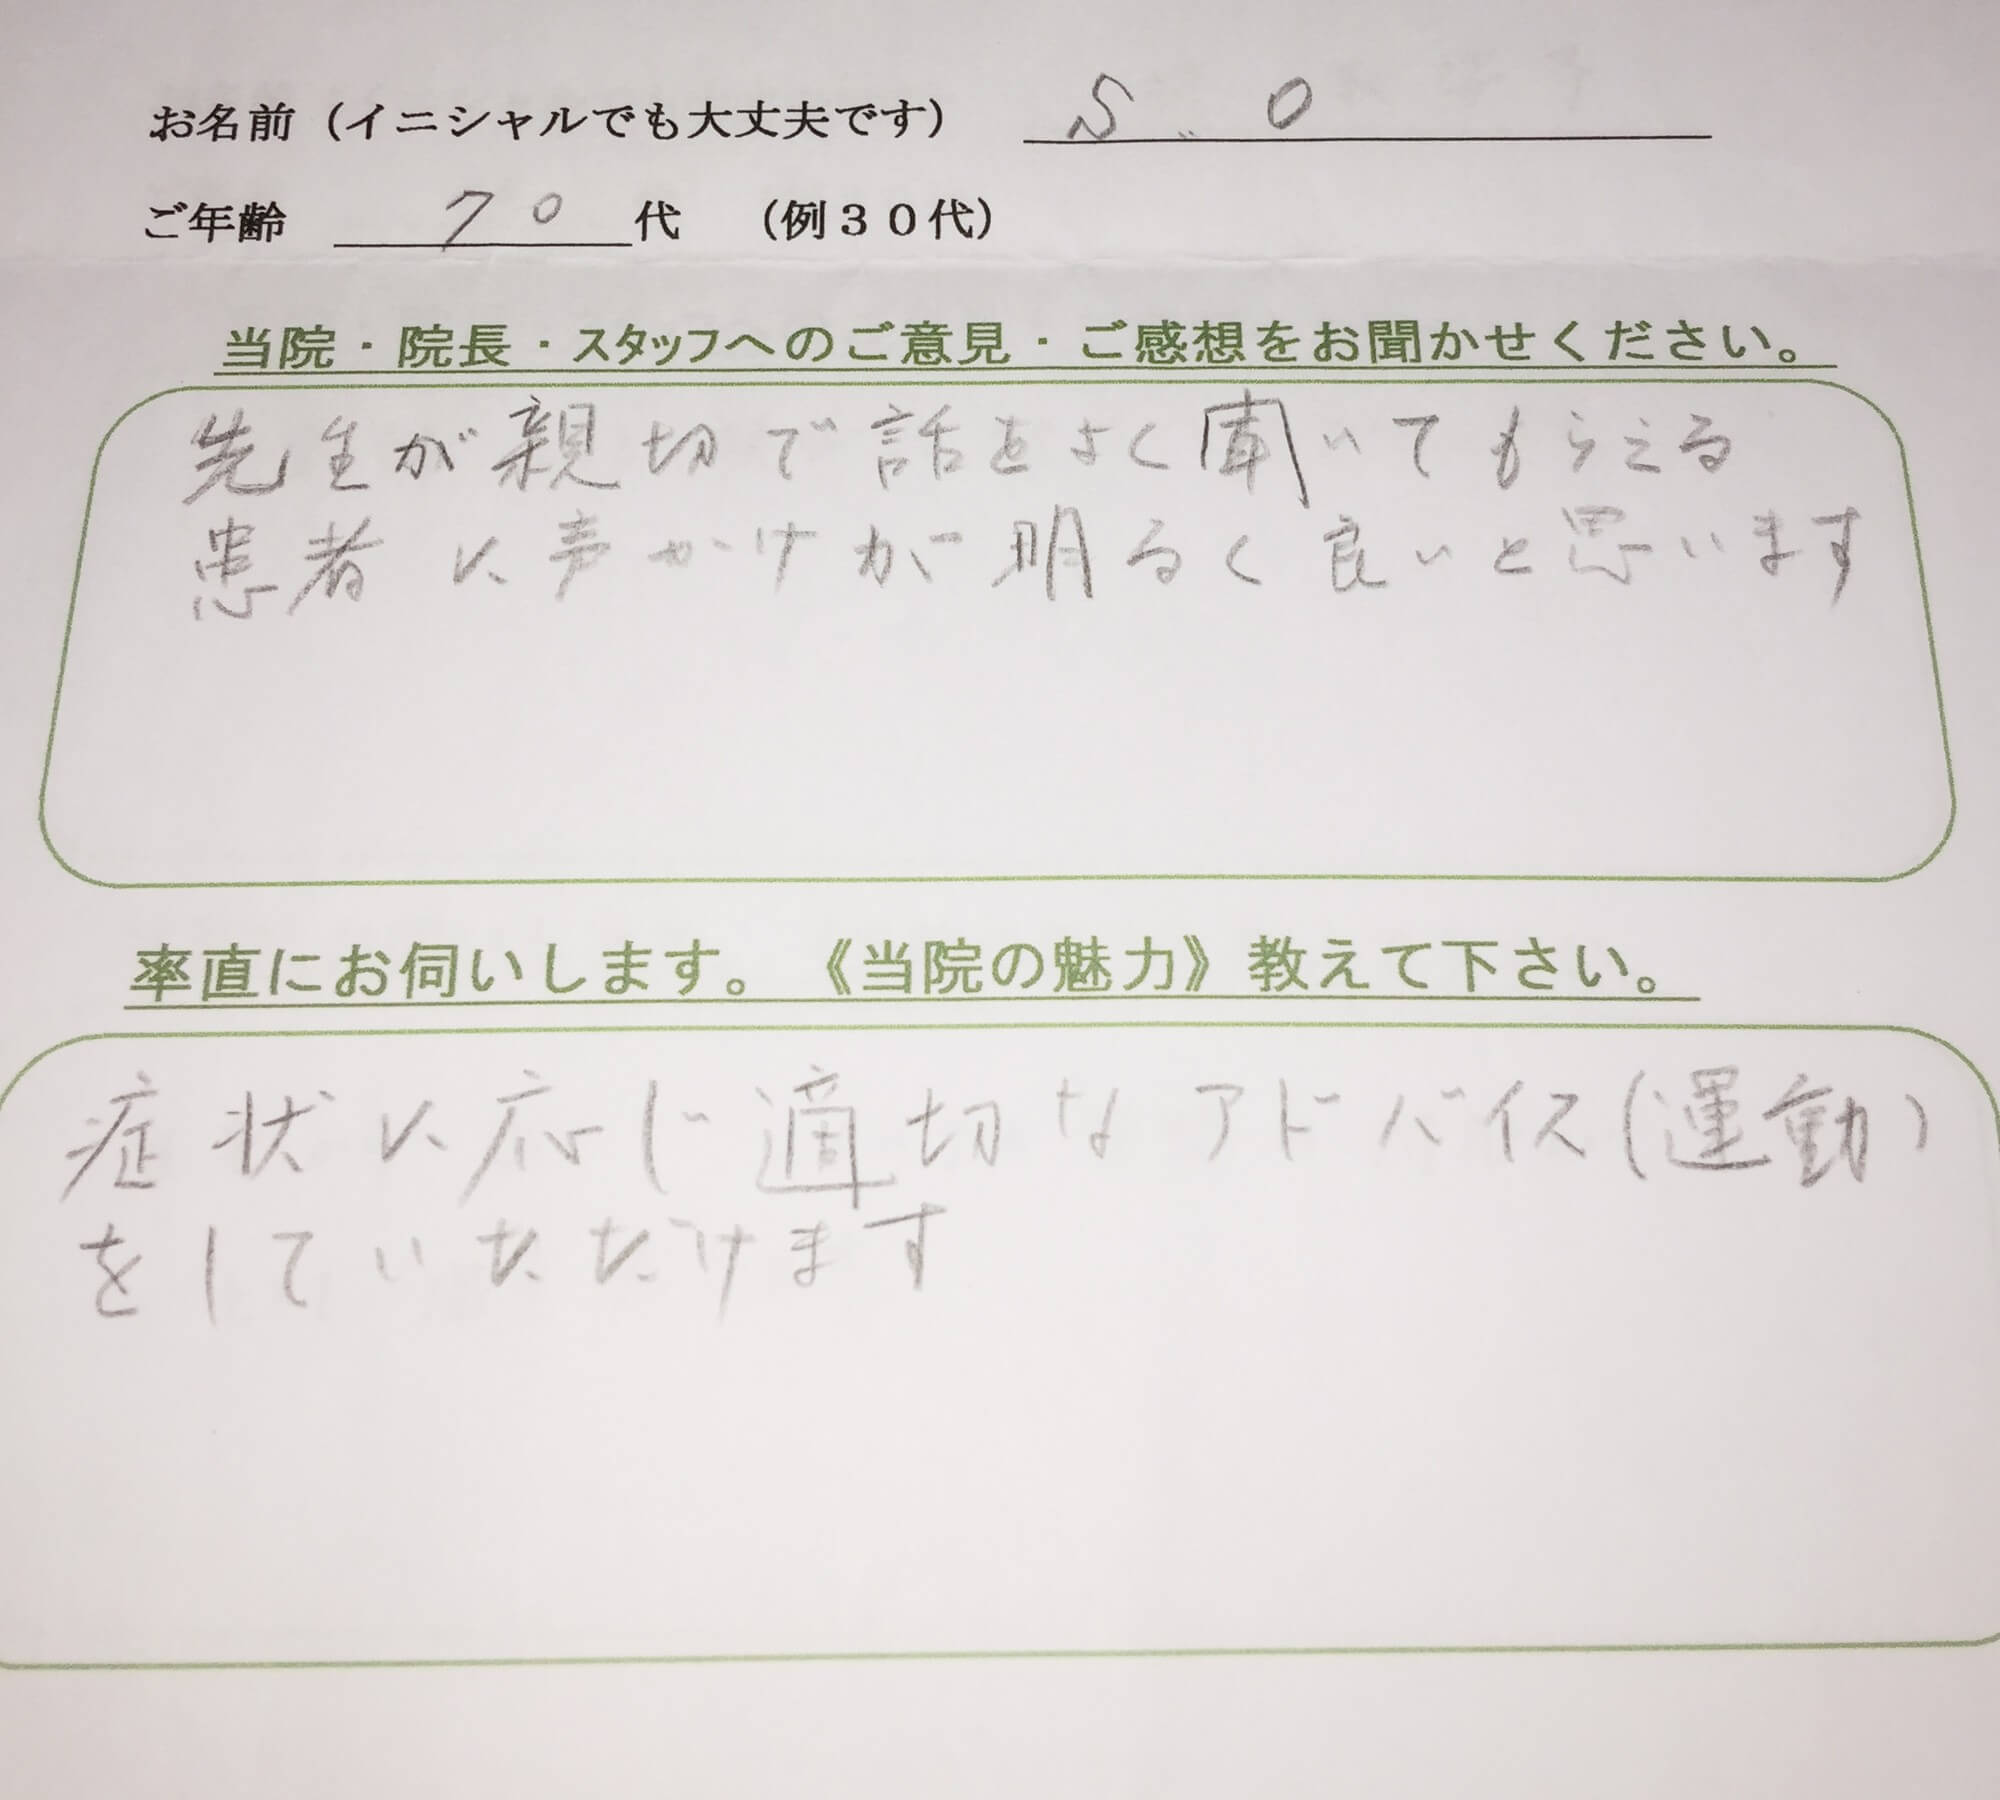 お名前（イニシャルでも大丈夫です） S. O
ご年齢 70代 （例３０代）
当院・院長・スタッフへのご意見・ご感想をお聞かせください。
先生が親切で話をよく聞いてもらえる
患者に声かけが明るく良いと思います
率直にお伺いします。《当院の魅力》教えて下さい。
症状に応じ適切なアドバイス(運動)
をしていただけます